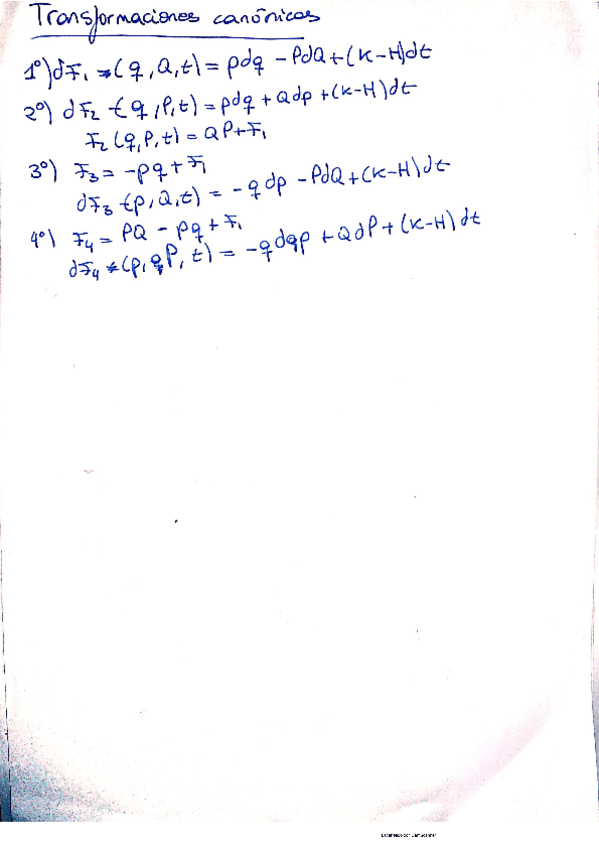 Transformaciones canónicas
1º) dF₁ (q, Q, t) = pdq - PdQ + (K-H)dt
2º) dF₂ (q, P, t) = pdq + Qdp + (K-H)dt
F₂ (q, P, t) = QP + F₁
3º) F₃ = -pq + F₁
dF₃ (p, Q, t) = -qdp - PdQ + (K-H)dt
4º) F₄ = PQ - pq + F₁
dF₄ (p, P, t) = -qdp + QdP + (K-H)dt